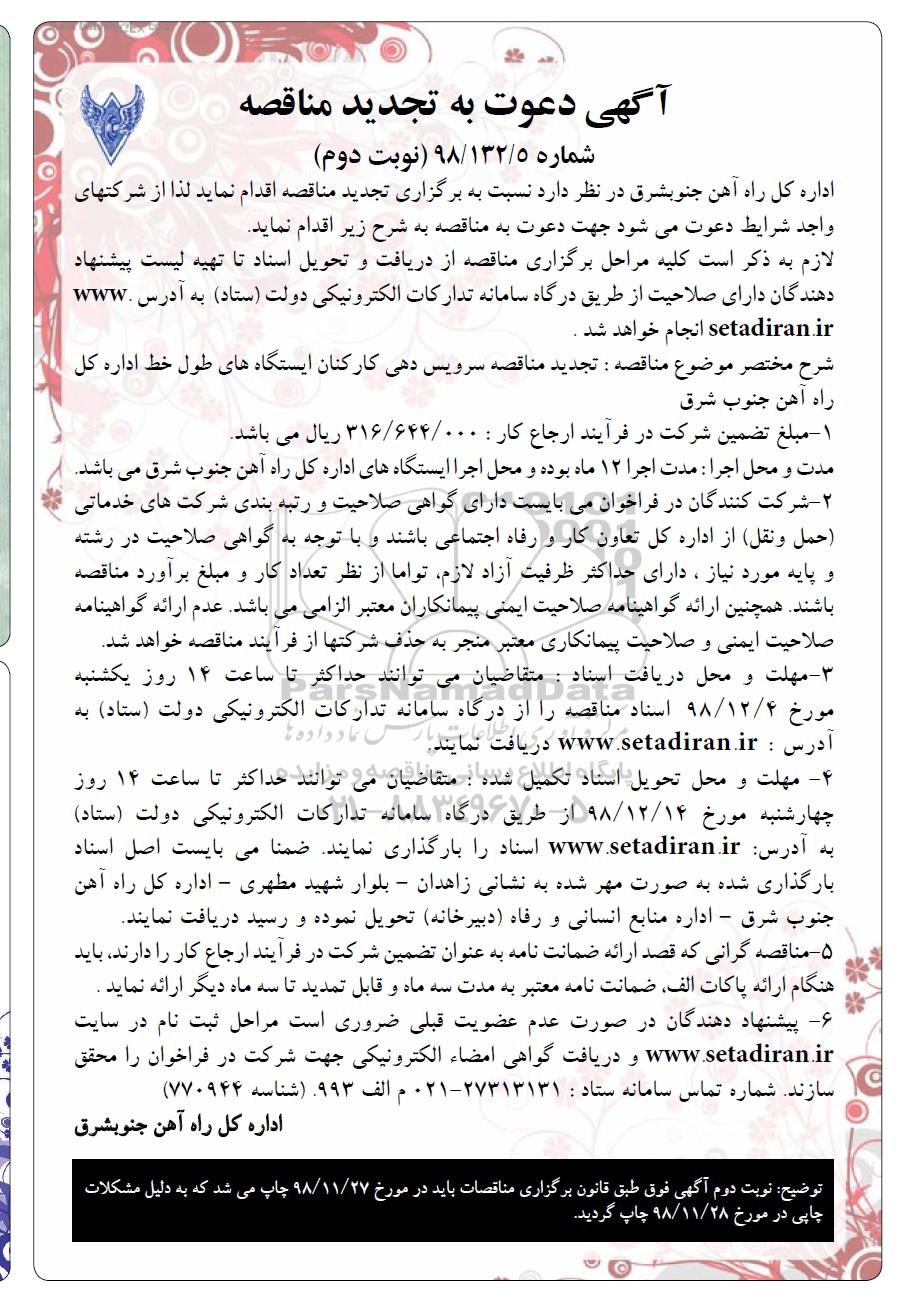 آگهی دعوت به تجدید مناقصه
شماره ۹۸/۱۳۲/۵ (نوبت دوم)
اداره کل راه آهن جنوبشرق در نظر دارد نسبت به برگزاری تجدید مناقصه اقدام نماید لذا از شرکتهای
واجد شرایط دعوت می شود جهت دعوت به مناقصه به شرح زیر اقدام نماید.
لازم به ذکر است کلیه مراحل برگزاری مناقصه از دریافت و تحویل اسناد تا تهیه لیست پیشنهاد
دهندگان دارای صلاحیت از طریق درگاه سامانه تدارکات الکترونیکی دولت (ستاد) به آدرس www.
setadiran.ir انجام خواهد شد .
شرح مختصر موضوع مناقصه : تجدید مناقصه سرویس دهی کارکنان ایستگاه های طول خط اداره کل
راه آهن جنوب شرق
۱-مبلغ تضمین شرکت در فرآیند ارجاع کار : ۳۱۶/۶۴۴/۰۰۰ ریال می باشد.
مدت و محل اجرا : مدت اجرا ۱۲ ماه بوده و محل اجرا ایستگاه های اداره کل راه آهن جنوب شرق می باشد.
۲-شرکت کنندگان در فراخوان می بایست دارای گواهی صلاحیت و رتبه بندی شرکت های خدماتی
(حمل ونقل) از اداره کل تعاون کار و رفاه اجتماعی باشند و با توجه به گواهی صلاحیت در رشته
و پایه مورد نیاز ، دارای حداکثر ظرفیت آزاد لازم، تواما از نظر تعداد کار و مبلغ برآورد مناقصه
باشند. همچنین ارائه گواهینامه صلاحیت ایمنی پیمانکاران معتبر الزامی می باشد. عدم ارائه گواهینامه
صلاحیت ایمنی و صلاحیت پیمانکاری معتبر منجر به حذف شرکتها از فرآیند مناقصه خواهد شد.
۳-مهلت و محل دریافت اسناد : متقاضیان می توانند حداکثر تا ساعت ۱۴ روز یکشنبه
مورخ ۹۸/۱۲/۴ اسناد مناقصه را از درگاه سامانه تدارکات الکترونیکی دولت (ستاد) به
آدرس : www.setadiran.ir دریافت نمایند.
۴- مهلت و محل تحویل اسناد تکمیل شده : متقاضیان می توانند حداکثر تا ساعت ۱۴ روز
چهارشنبه مورخ ۹۸/۱۲/۱۴ از طریق درگاه سامانه تدارکات الکترونیکی دولت (ستاد)
به آدرس: www.setadiran.ir اسناد را بارگذاری نمایند. ضمنا می بایست اصل اسناد
بارگذاری شده به صورت مهر شده به نشانی زاهدان – بلوار شهید مطهری – اداره کل راه آهن
جنوب شرق – اداره منابع انسانی و رفاه (دبیرخانه) تحویل نموده و رسید دریافت نمایند.
۵-مناقصه گرانی که قصد ارائه ضمانت نامه به عنوان تضمین شرکت در فرآیند ارجاع کار را دارند، باید
هنگام ارائه پاکات الف، ضمانت نامه معتبر به مدت سه ماه و قابل تمدید تا سه ماه دیگر ارائه نماید .
۶- پیشنهاد دهندگان در صورت عدم عضویت قبلی ضروری است مراحل ثبت نام در سایت
www.setadiran.ir و دریافت گواهی امضاء الکترونیکی جهت شرکت در فراخوان را محقق
سازند. شماره تماس سامانه ستاد : ۲۷۳۱۳۱۳۱-۰۲۱ م الف ۹۹۳. (شناسه ۷۷۰۹۴۴)
اداره کل راه آهن جنوبشرق
توضیح: نوبت دوم آگهی فوق طبق قانون برگزاری مناقصات باید در مورخ ۹۸/۱۱/۲۷ چاپ می شد که به دلیل مشکلات
چاپی در مورخ ۹۸/۱۱/۲۸ چاپ گردید.
ParsNamadData
پایگاه اطلاع رسانی مناقصه و مزایده
۰۲۱-۸۸۳۴۹۶۷۰-۵